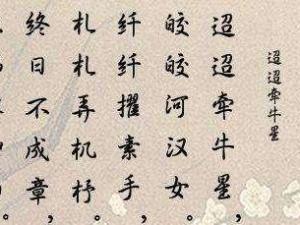 迢迢牵牛星
迢迢牵牛星，
皎皎河汉女。
纤纤擢素手，
札札弄机杼。
终日不成章，